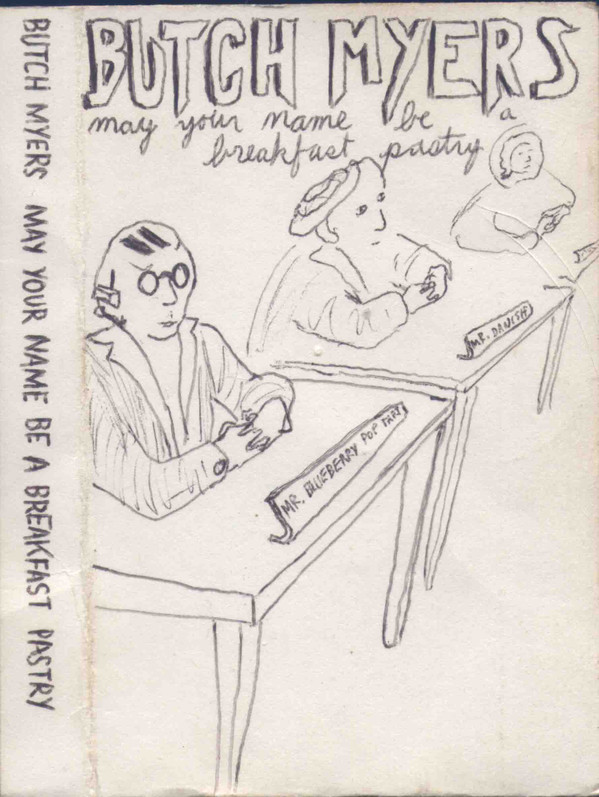 BUTCH MYERS MAY YOUR NAME BE A BREAKFAST PASTRY
BUTCH MYERS
may your name be a
breakfast pastry
MR. DANISH
MR. BLUEBERRY POP TART